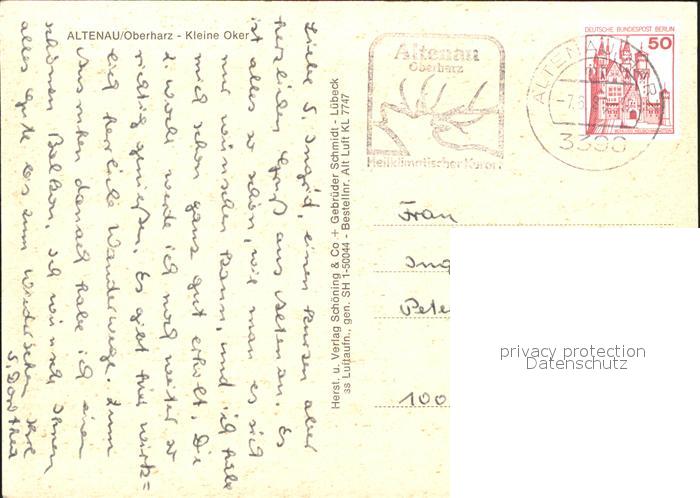 ALTENAU/Oberharz - Kleine Oker
Liebe S. Ingrid, einen kurzen aber
herzlichen Gruß aus Altenau. Es
ist alles so schön, wie man es sich
nur wünschen kann, und ich habe
mich schon ganz gut erholt. Die
2. Woche werde ich noch weiter so
richtig genießen. Es gibt hier wirk=
lich herrliche Wanderwege. Zum
Ausruhen danach habe ich einen
schönen Balkon. Ich wünsche Ihnen
alles Gute bis zum Wiedersehen Ihre
S. Dorothea
Herst. u. Verlag Schöning & Co + Gebrüder Schmidt - Lübeck
Ss Luftaufn., gen. SH 1-50044 - Bestellnr. Alt Luft KL 7747
Altenau
Oberharz
Heilklimatischer Kurort
ALTENAU
3396
DEUTSCHE BUNDESPOST BERLIN
50
Frau
Ing
Pete
100
privacy protection
Datenschutz